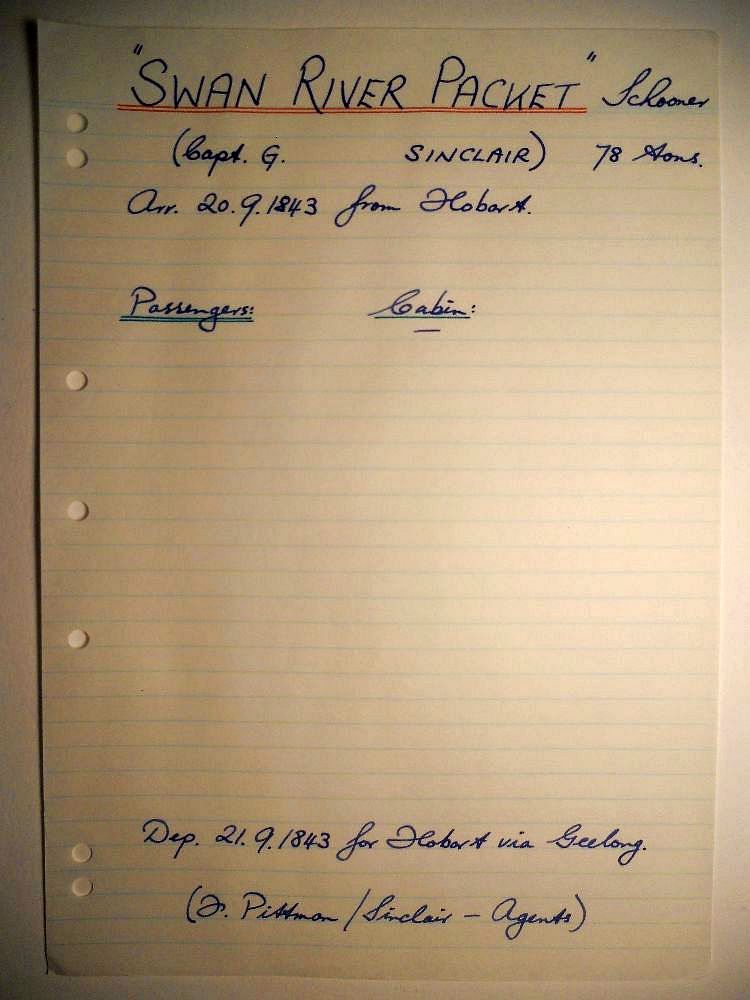 "SWAN RIVER PACKET" Schooner
(Capt. G. SINCLAIR) 78 tons.
Arr. 20.9.1843 from Hobart.
Passengers: Cabin:
Dep. 21.9.1843 for Hobart via Geelong.
(J. Pittman / Sinclair - Agents)